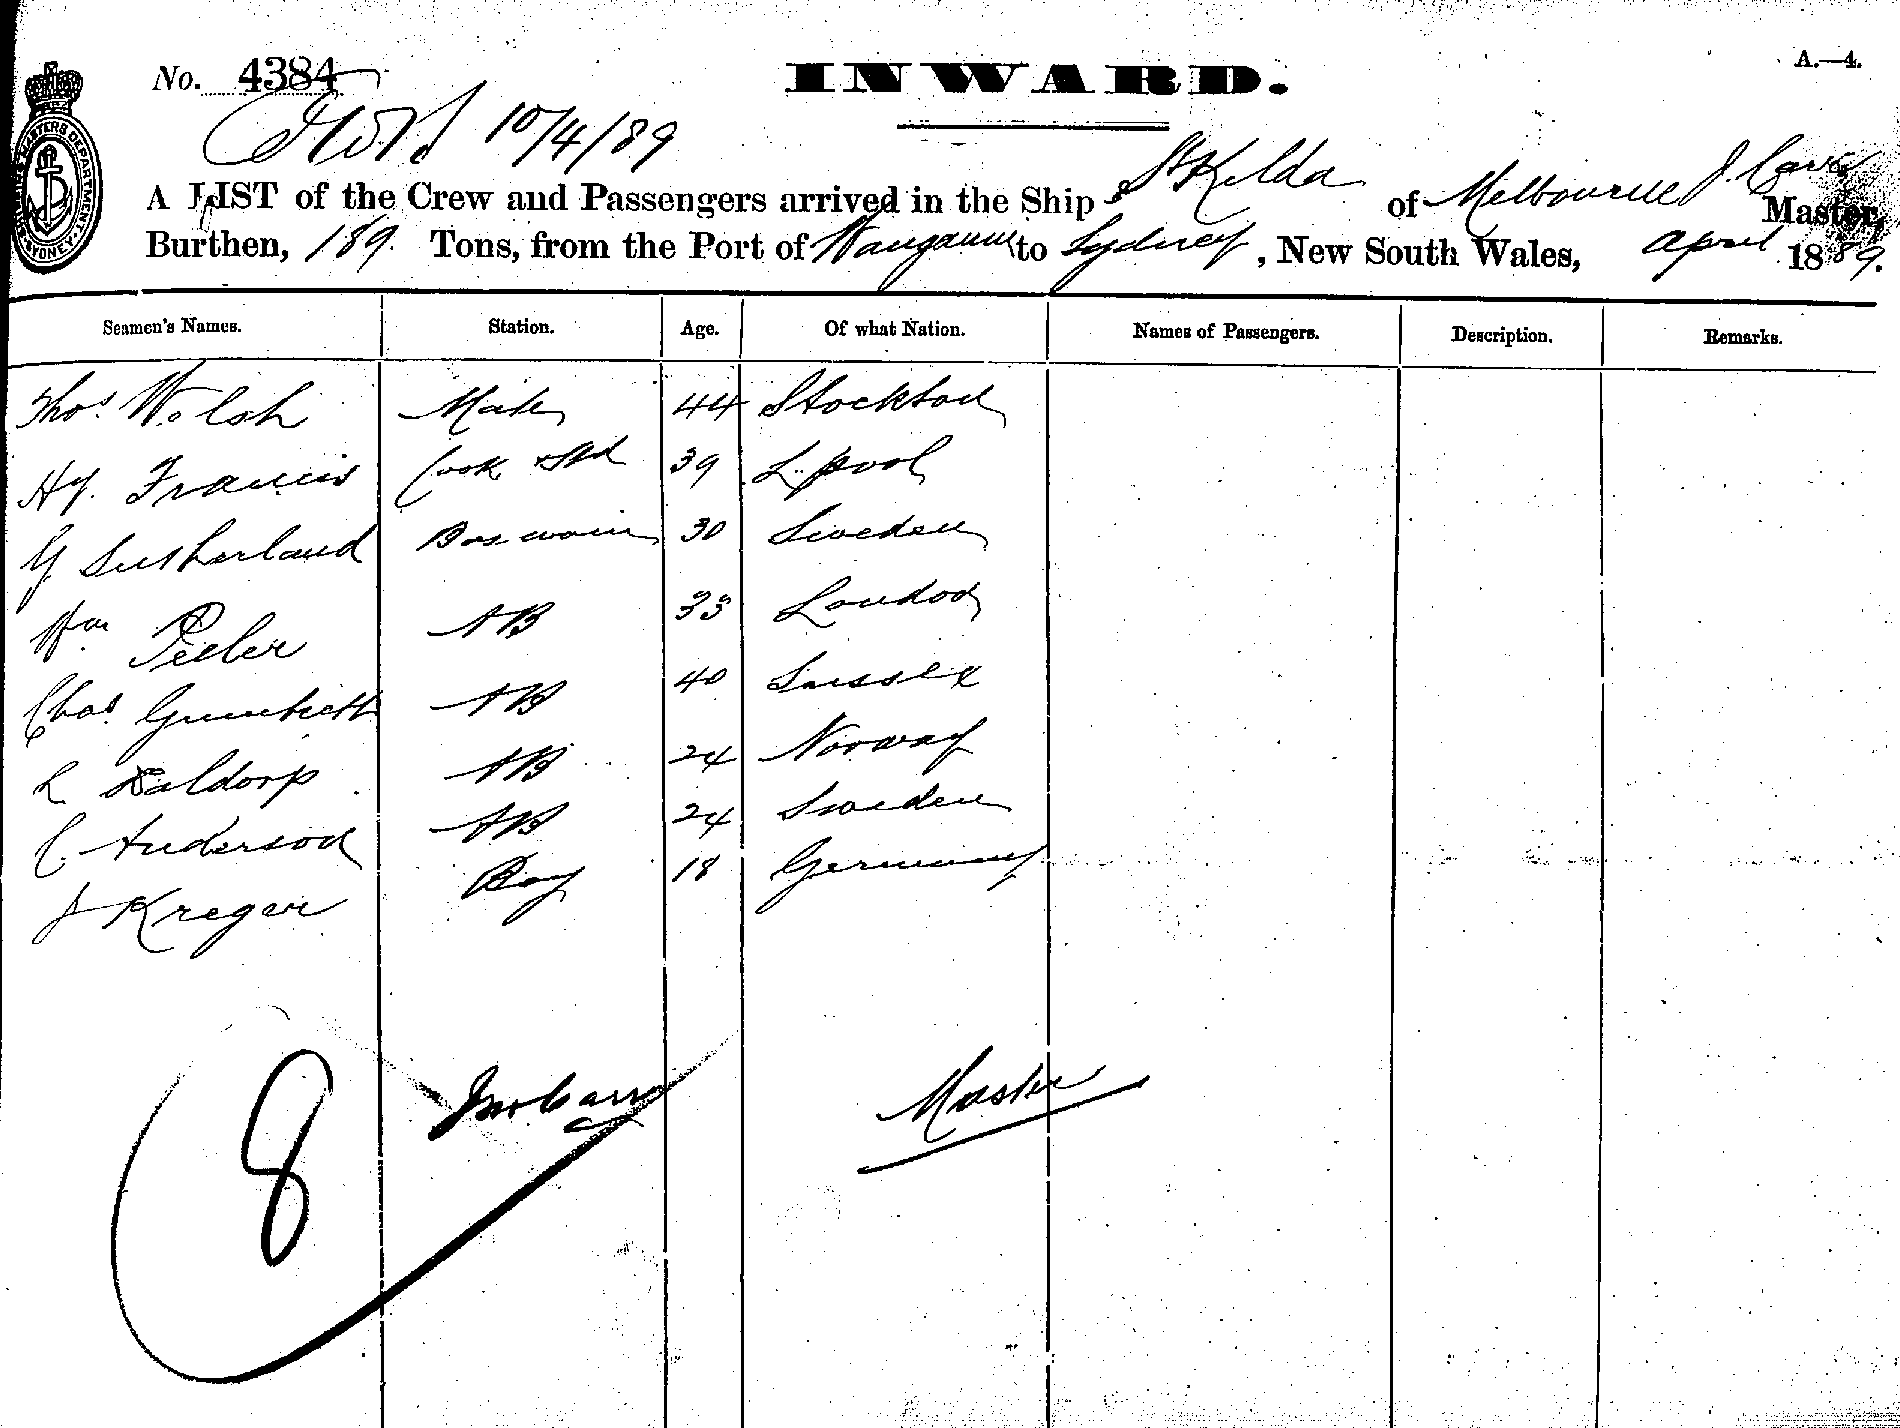 No. 4384
INWARD.
A.—4.
10/4/89
A LIST of the Crew and Passengers arrived in the Ship St Kilda of Melbourne J. Master,
Burthen, 189. Tons, from the Port of to Sydney, New South Wales, April 1889.
Seamen's Names. Station. Age. Of what Nation. Names of Passengers. Description. Remarks.
Thos Welsh Mate 44 Stockton
Hy. Francis Cook & Std 39 L..pool
Y Sutherland Boswain 30 Sweden
Wm Peeler AB 33 London
Chas. AB 40 Sussex
L Daldorp AB 24 Norway
C. Anderson AB 24 Sweden
J Kreger Boy 18 Germany
8
Master